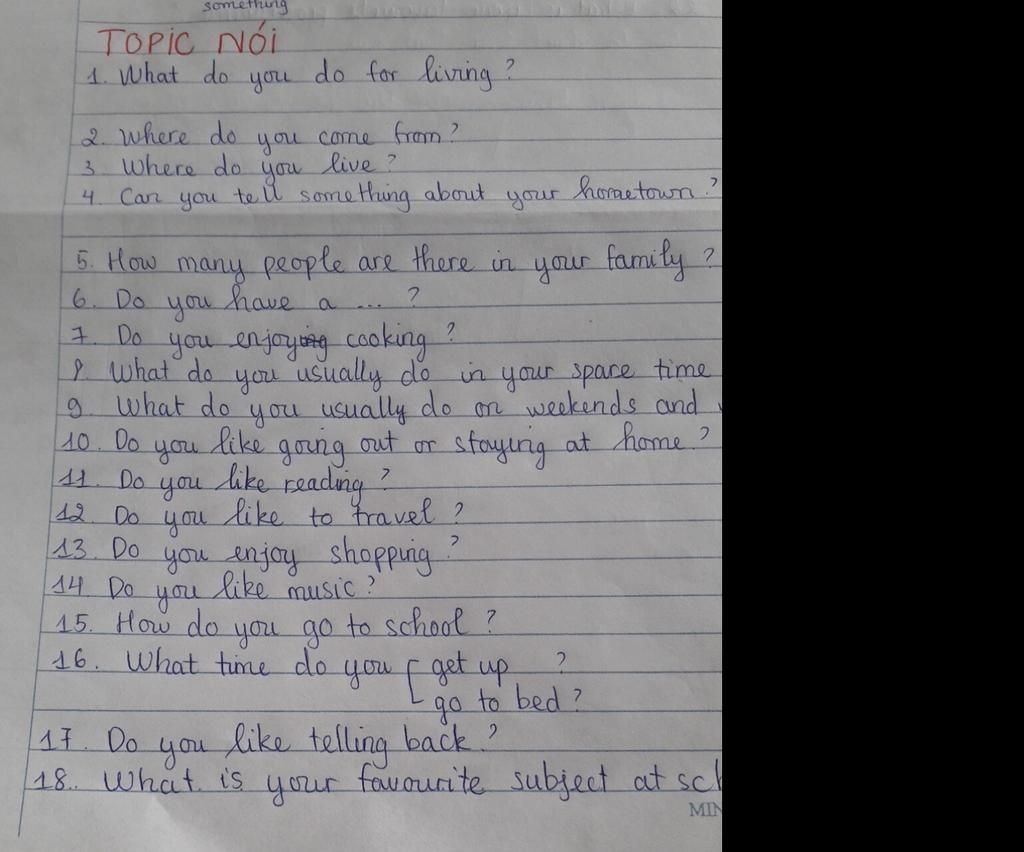 something
TOPIC NÓI
1. What do you do for living ?
2. Where do you come from ?
3. Where do you live ?
4. Can you tell something about your hometown ?
5. How many people are there in your family ?
6. Do you have a ... ?
7. Do you enjoy cooking ?
8. What do you usually do in your space time
9. What do you usually do on weekends and
10. Do you like going out or staying at home ?
11. Do you like reading ?
12. Do you like to travel ?
13. Do you enjoy shopping ?
14. Do you like music ?
15. How do you go to school ?
16. What time do you get up ?
go to bed ?
17. Do you like telling back ?
18. What is your favourite subject at sch
MIN